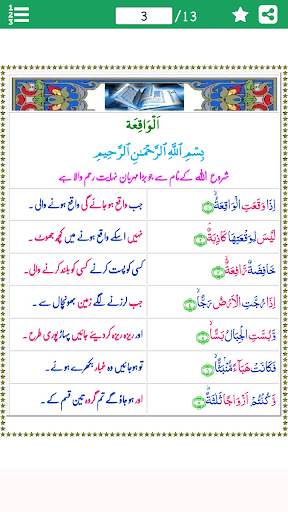 1 2 3
3 /13
اَلْوَاقِعَة
بِسْمِ اللَّهِ الرَّحْمَٰنِ الرَّحِيمِ
شروع اللہ کے نام سے جو بڑا مہربان نہایت رحم والا ہے
إِذَا وَقَعَتِ الْوَاقِعَةُ ۙ جب واقع ہو جائے گی واقع ہونے والی ۔
لَيْسَ لِوَقْعَتِهَا كَاذِبَةٌ ۘ نہیں اسکے واقع ہونے میں کچھ جھوٹ ۔
خَافِضَةٌ رَّافِعَةٌ ۙ کسی کو پست کرنے کسی کو بلند کرنے والی۔
إِذَا رُجَّتِ الْأَرْضُ رَجًّا ۙ جب لرزنے لگے زمین بھونچال سے ۔
وَّبُسَّتِ الْجِبَالُ بَسًّا ۙ اور ریزہ ریزہ کردیئے جائیں پہاڑ پوری طرح ۔
فَكَانَتْ هَبَاءً مُّنْبَثًّا ۙ تو ہوجائیں وہ غبار بکھرے ہوئے ۔
وَّكُنْتُمْ أَزْوَاجًا ثَلٰثَةً ؕ اور ہو جاؤ گے تم گروہ تین قسم کے ۔